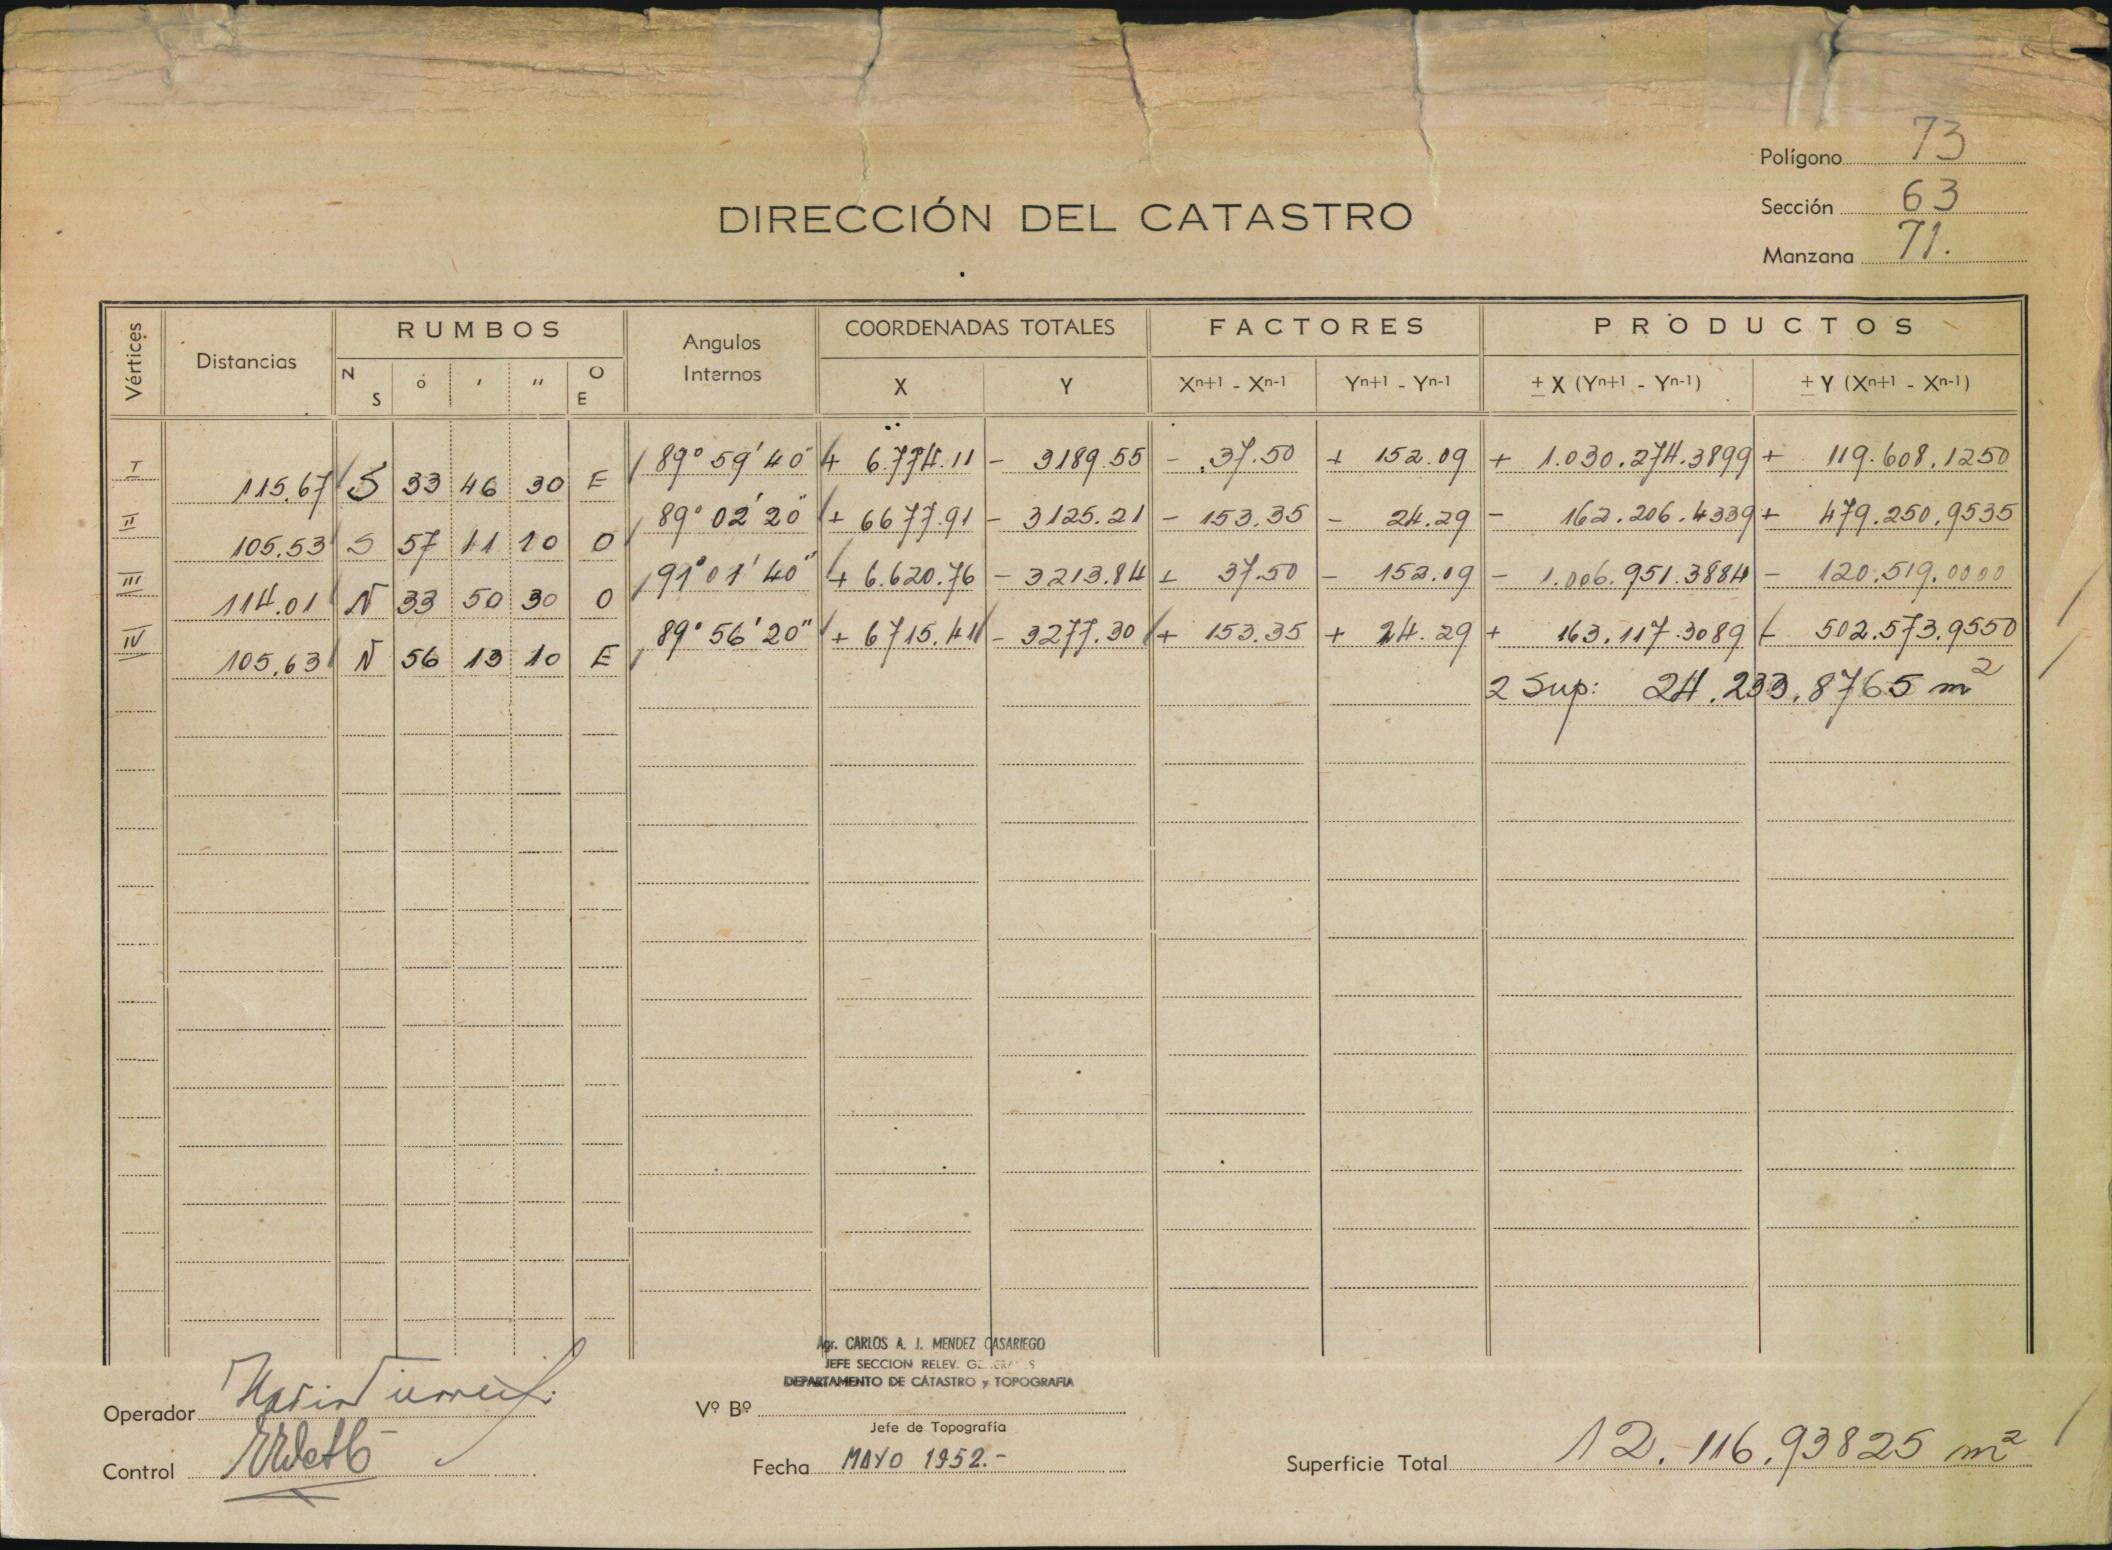 Polígono 73
Sección 63
Manzana 71.
DIRECCIÓN DEL CATASTRO
Vértices Distancias RUMBOS Angulos Internos COORDENADAS TOTALES FACTORES PRODUCTOS
N S o ' " O E X Y Xn+1 - Xn-1 Yn+1 - Yn-1 ± X (Yn+1 - Yn-1) ± Y (Xn+1 - Xn-1)
I 89° 59' 40" + 6.774.11 - 3189.55 - 37.50 + 152.09 + 1.030.274.3899 + 119.608.1250
115.67 S 33 46 30 E
II 89° 02' 20" + 6677.91 - 3125.21 - 153.35 - 24.29 - 162.206.4339 + 479.250.9535
105.53 S 57 11 10 O
III 91° 01' 40" + 6.620.76 - 3213.84 + 37.50 - 152.09 - 1.006.951.3884 - 120.519.0000
114.01 N 33 50 30 O
IV 89° 56' 20" + 6715.41 - 3277.30 + 153.35 + 24.29 + 163.117.3089 - 502.573.9550
105.63 N 56 13 10 E
2 Sup: 24.233.8765 m²
Agr. CARLOS A. J. MENDEZ CASARIEGO
JEFE SECCION RELEV. GENERALES
DEPARTAMENTO DE CATASTRO y TOPOGRAFIA
Operador
Vº Bº
Jefe de Topografía
Control
Fecha MAYO 1952.-
Superficie Total 12.116.93825 m²